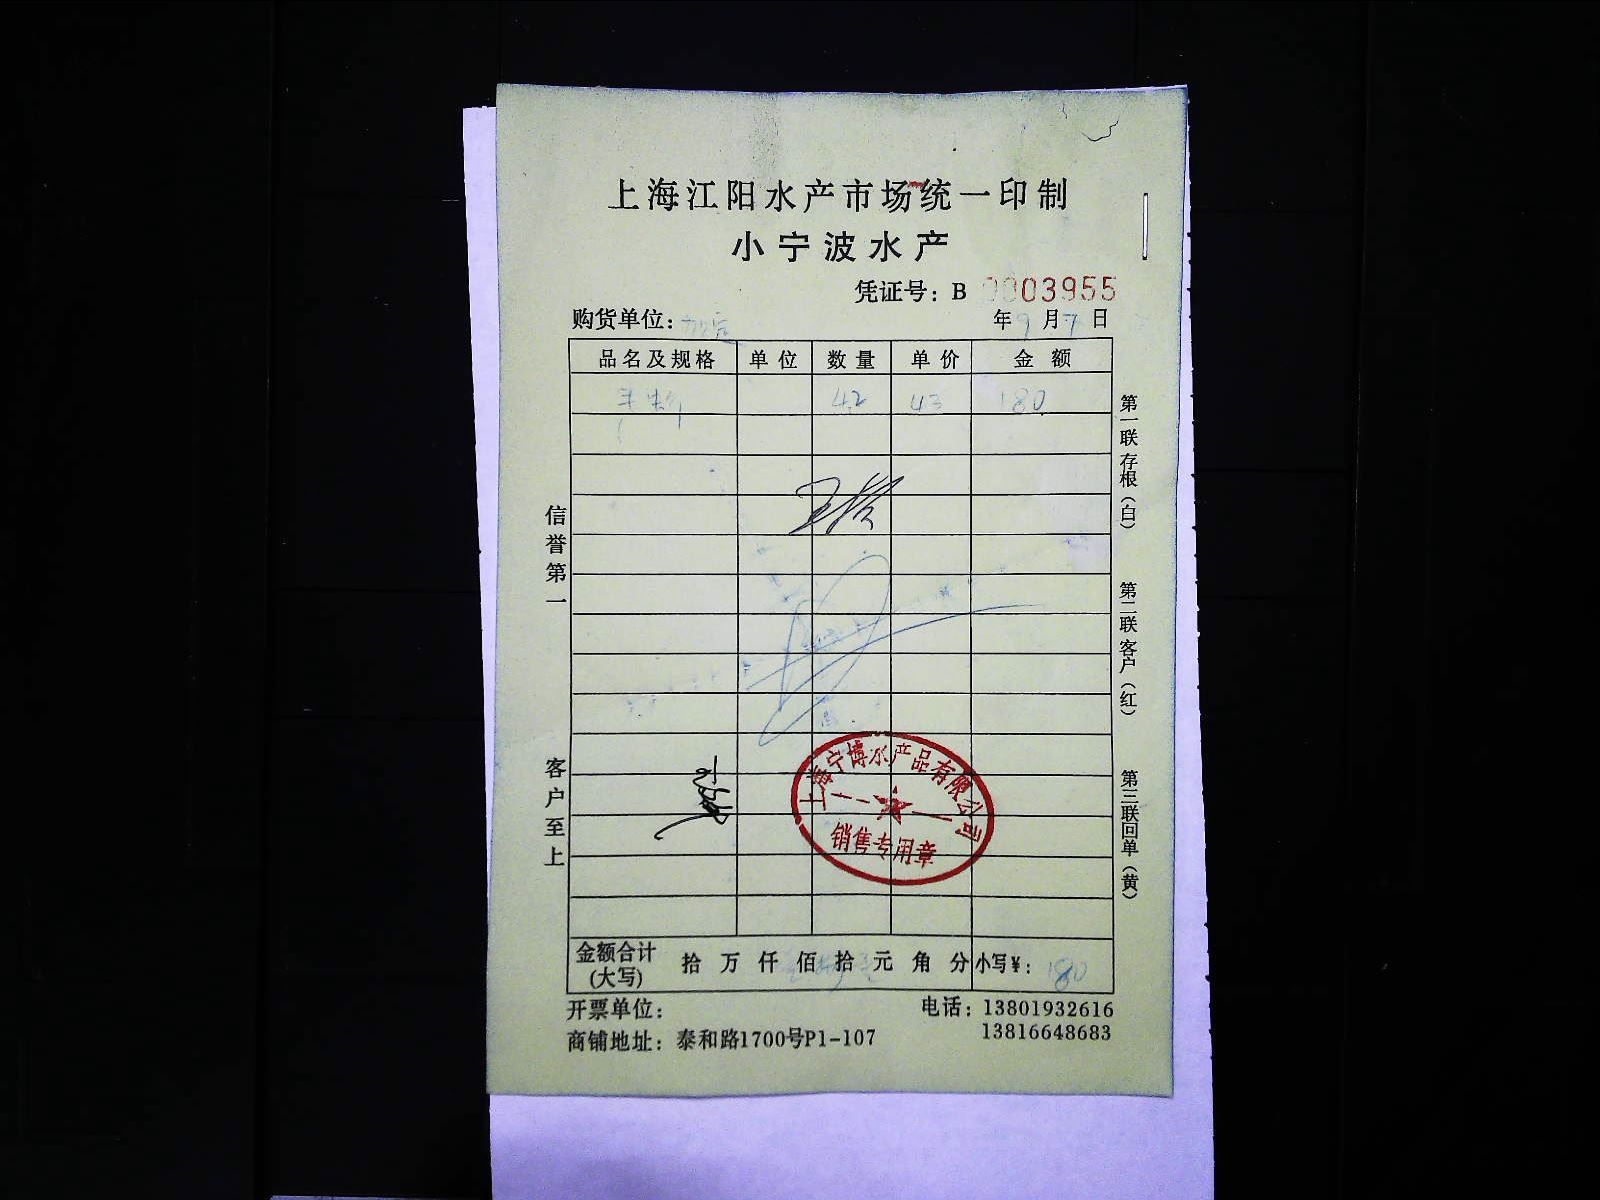 上海江阳水产市场统一印制
小宁波水产
凭证号：B 0003955
购货单位：
年9月7日
品名及规格 单位 数量 单价 金额
42 43 180
信誉第一
客户至上
第一联存根（白）
第二联客户（红）
第三联回单（黄）
上海宁博水产品有限公司
销售专用章
金额合计（大写） 拾 万 仟 佰 拾 元 角 分 小写¥：180
开票单位： 电话：13801932616
13816648683
商铺地址：泰和路1700号P1-107